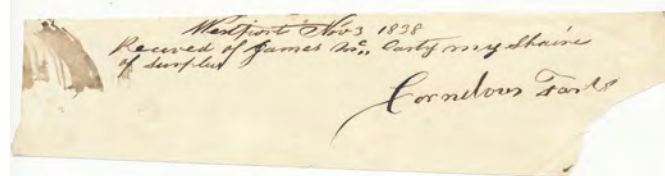 Westport Nov 3 1838
Received of James Mc,, Carty my Shaire
of Surplus
Cornelous